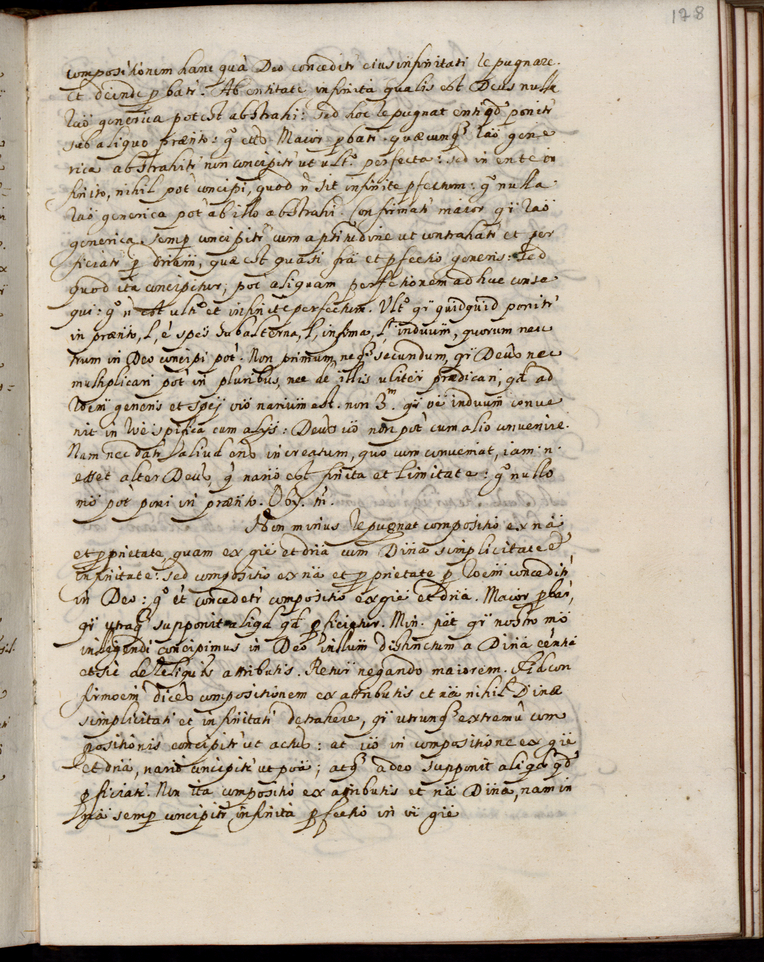 178
compositionem hanc quà Deo conceditr eius infinitati repugnare.
et deinde pbatr. Ab entitate infinita qualis est Deus nulla
raõ generica potest abstrahi: sed hoc repugnat enti qd ponitr
sub aliquo prænto: g° etc Maior pbatr quæcunq raõ gene
rica abstrahitr non concipitr ut ult° perfecta: sed in ente in
finito, nihil pot concipi, quod ñ sit infinite pfectum: g° nulla
raõ generica pot ab illo abstrahi. Confirmatr maior qi raõ
generica semp concipitr cum aptitudine ut contrahatr et per
ficiatr p driam, quæ est quasi fra et pfectio generis: sed
quod ita concipitur, pot aliquam perfectionem adhuc conse
qui: g° ñ est ult° et infinite perfectum. Ult° qi quidquid ponitr
in prænto, l, é speis subalterna, l, infima, l, induum, quorum neu
trum in Deo concipi pot. Non primum neq secundum, qi Deus nec
multiplicari pot in pluribus, nec de illis uliter prædicari, qd ad
idem generis et speij nãrium est. non 3.m qi oë induum conue
nit in rõe spifica cum alijs: Deus uõ non pot cum alio conuenire.
Nam nec datr aliud ens increatum, quo cum conueniat, iam n.
esset alter Deus, q nario est finita et limitate: g° nullo
mõ pot poni in prænto. Obij. tñ.
Non minus repugnat compositio ex nã
et pprietate, quam ex gñe et driã cum Diña simplicitate é
infinitate: sed compositio ex nã et pprietate p locum conceditr
in Deo: g° et concedetr compositio ex gñe et driã. Maior pbatr,
qi utraq supponit aliqd qd pficietur. Min. pät qi nostro mõ
intelligendi concipimus in Deo intellum distinctum a Diña centia
et sic de reliquis attributis. Retur negando maiorem. Ad con
firmoem dico compositionem ex attributis et nã nihil Diñæ
simplicitati et infinitati detrahere, qi utrunq extremũ com
positionis concipitr ut actus: at uõ in compositione ex gñe
et driã, nario concipitr ut poã; atq adeo supponit aliqd qd
pficiatr. Non ita compositio ex attributis et nã Diña, nam in
nã semp concipitr infinita pfectio in ui gñe